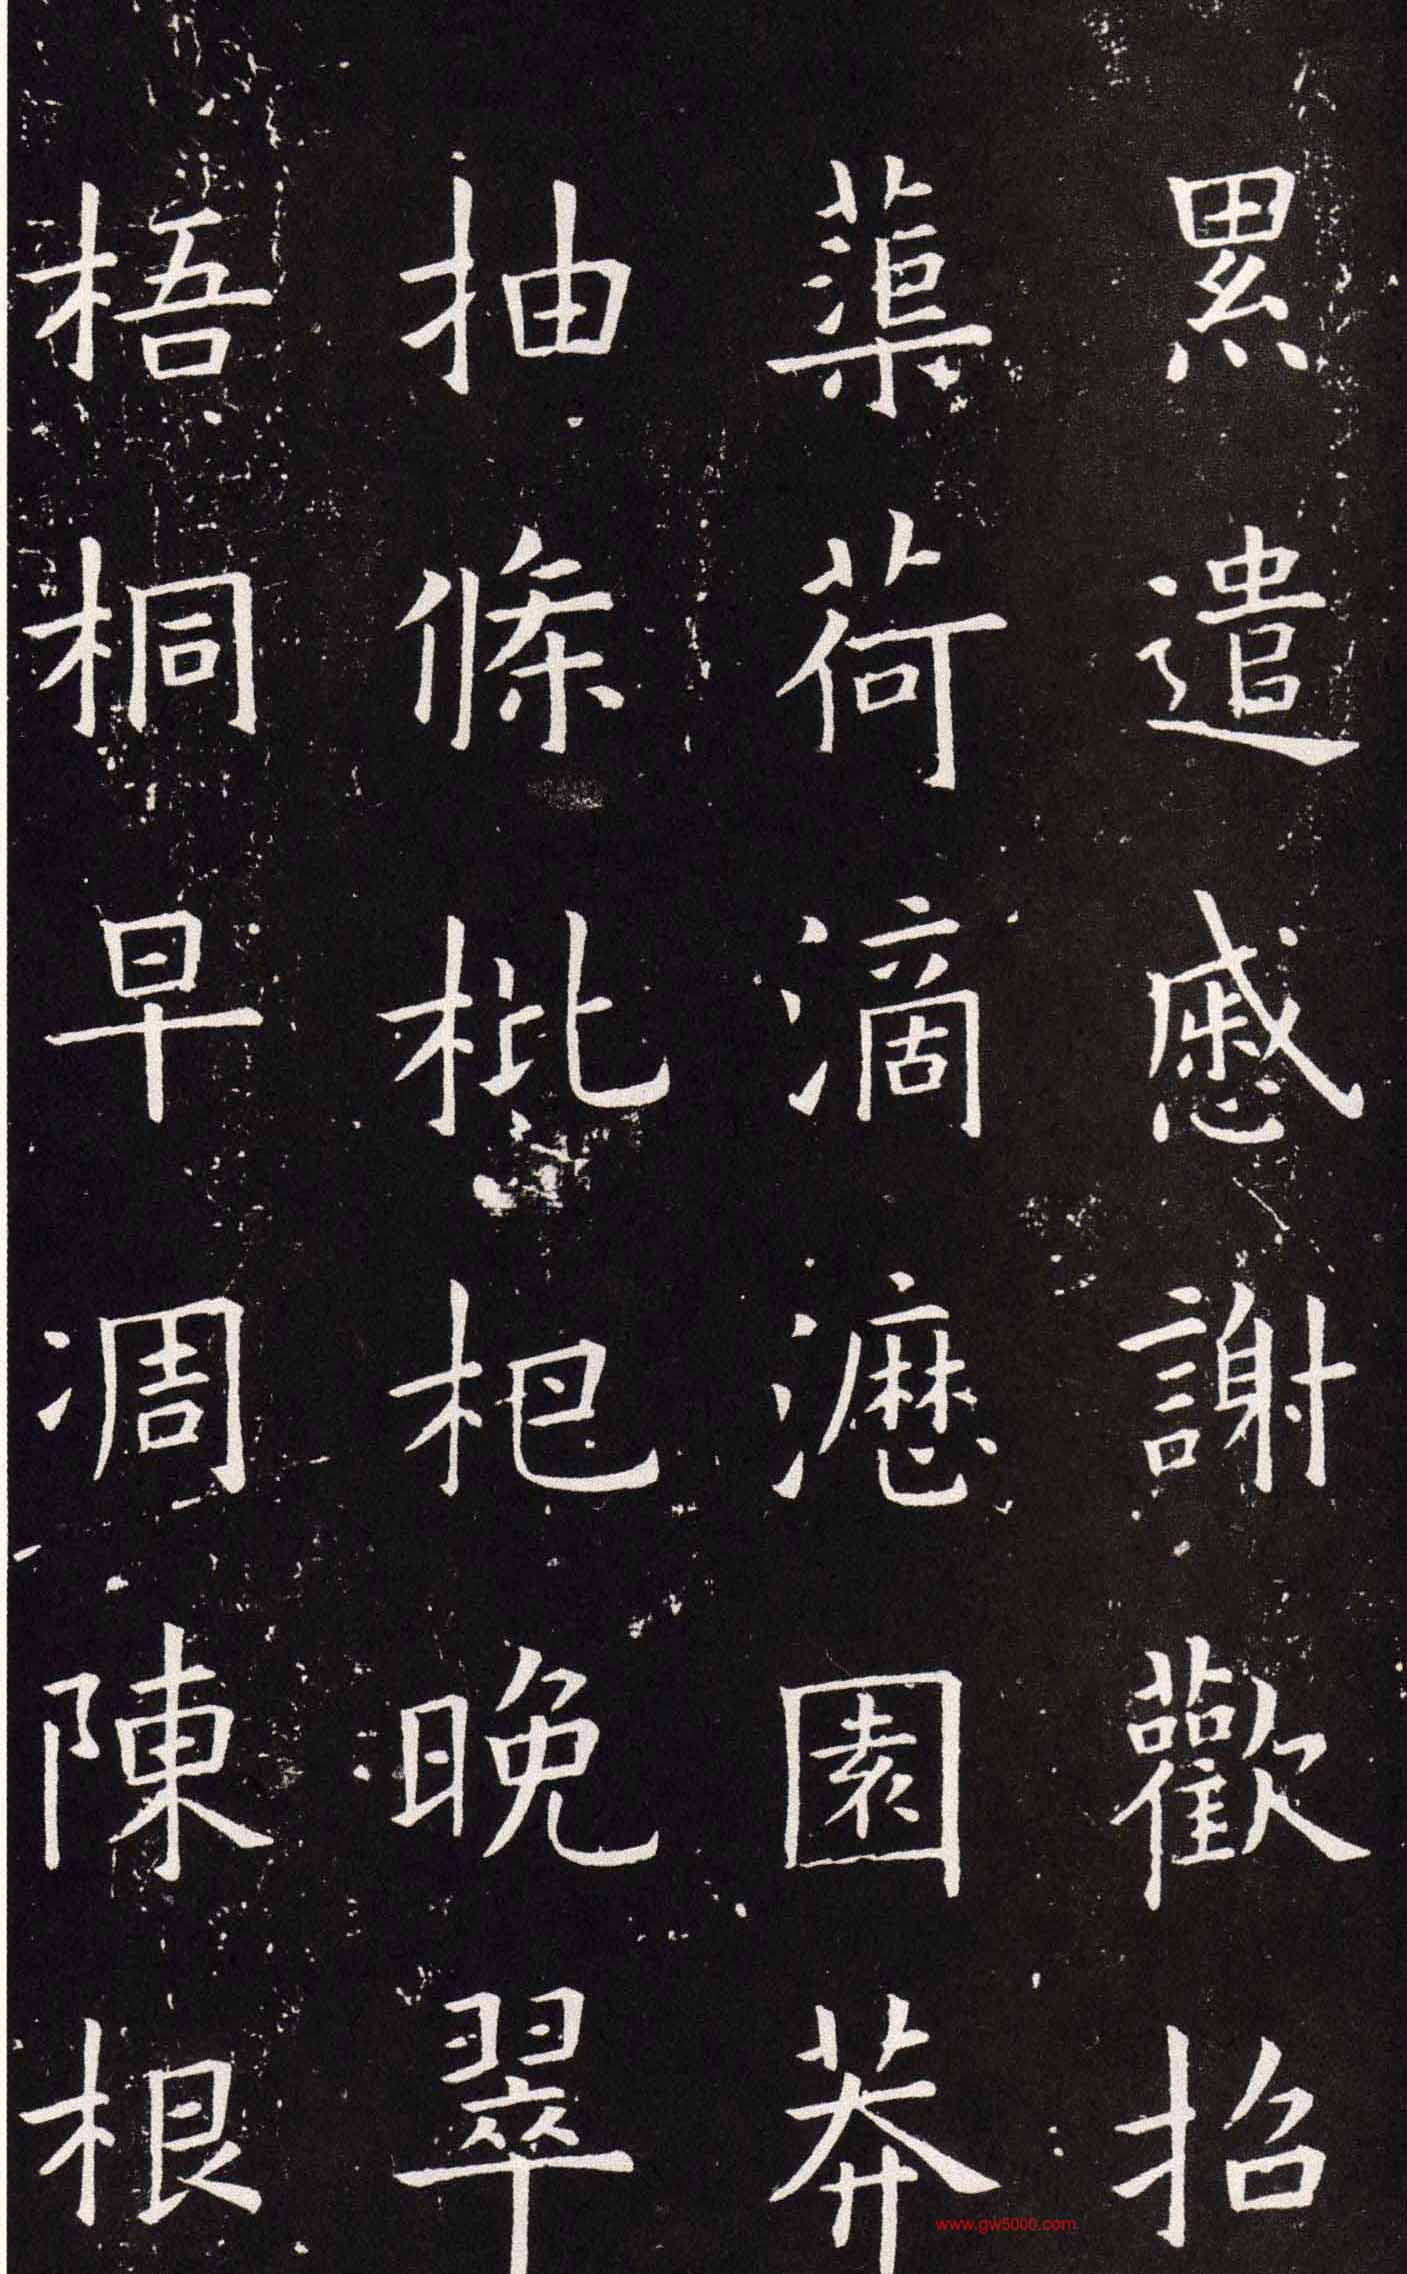 累遣慼謝歡招
蕖荷滴瀝園莽
抽條枇杷晚翠
梧桐早凋陳根
www.gw5000.com